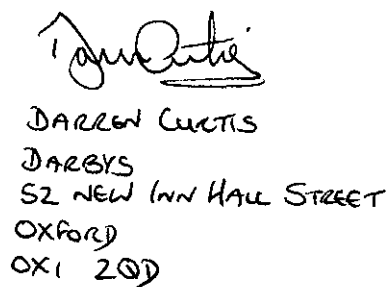 Darren Curtis
DARREN CURTIS
DARBYS
52 NEW INN HALL STREET
OXFORD
OX1 2QD